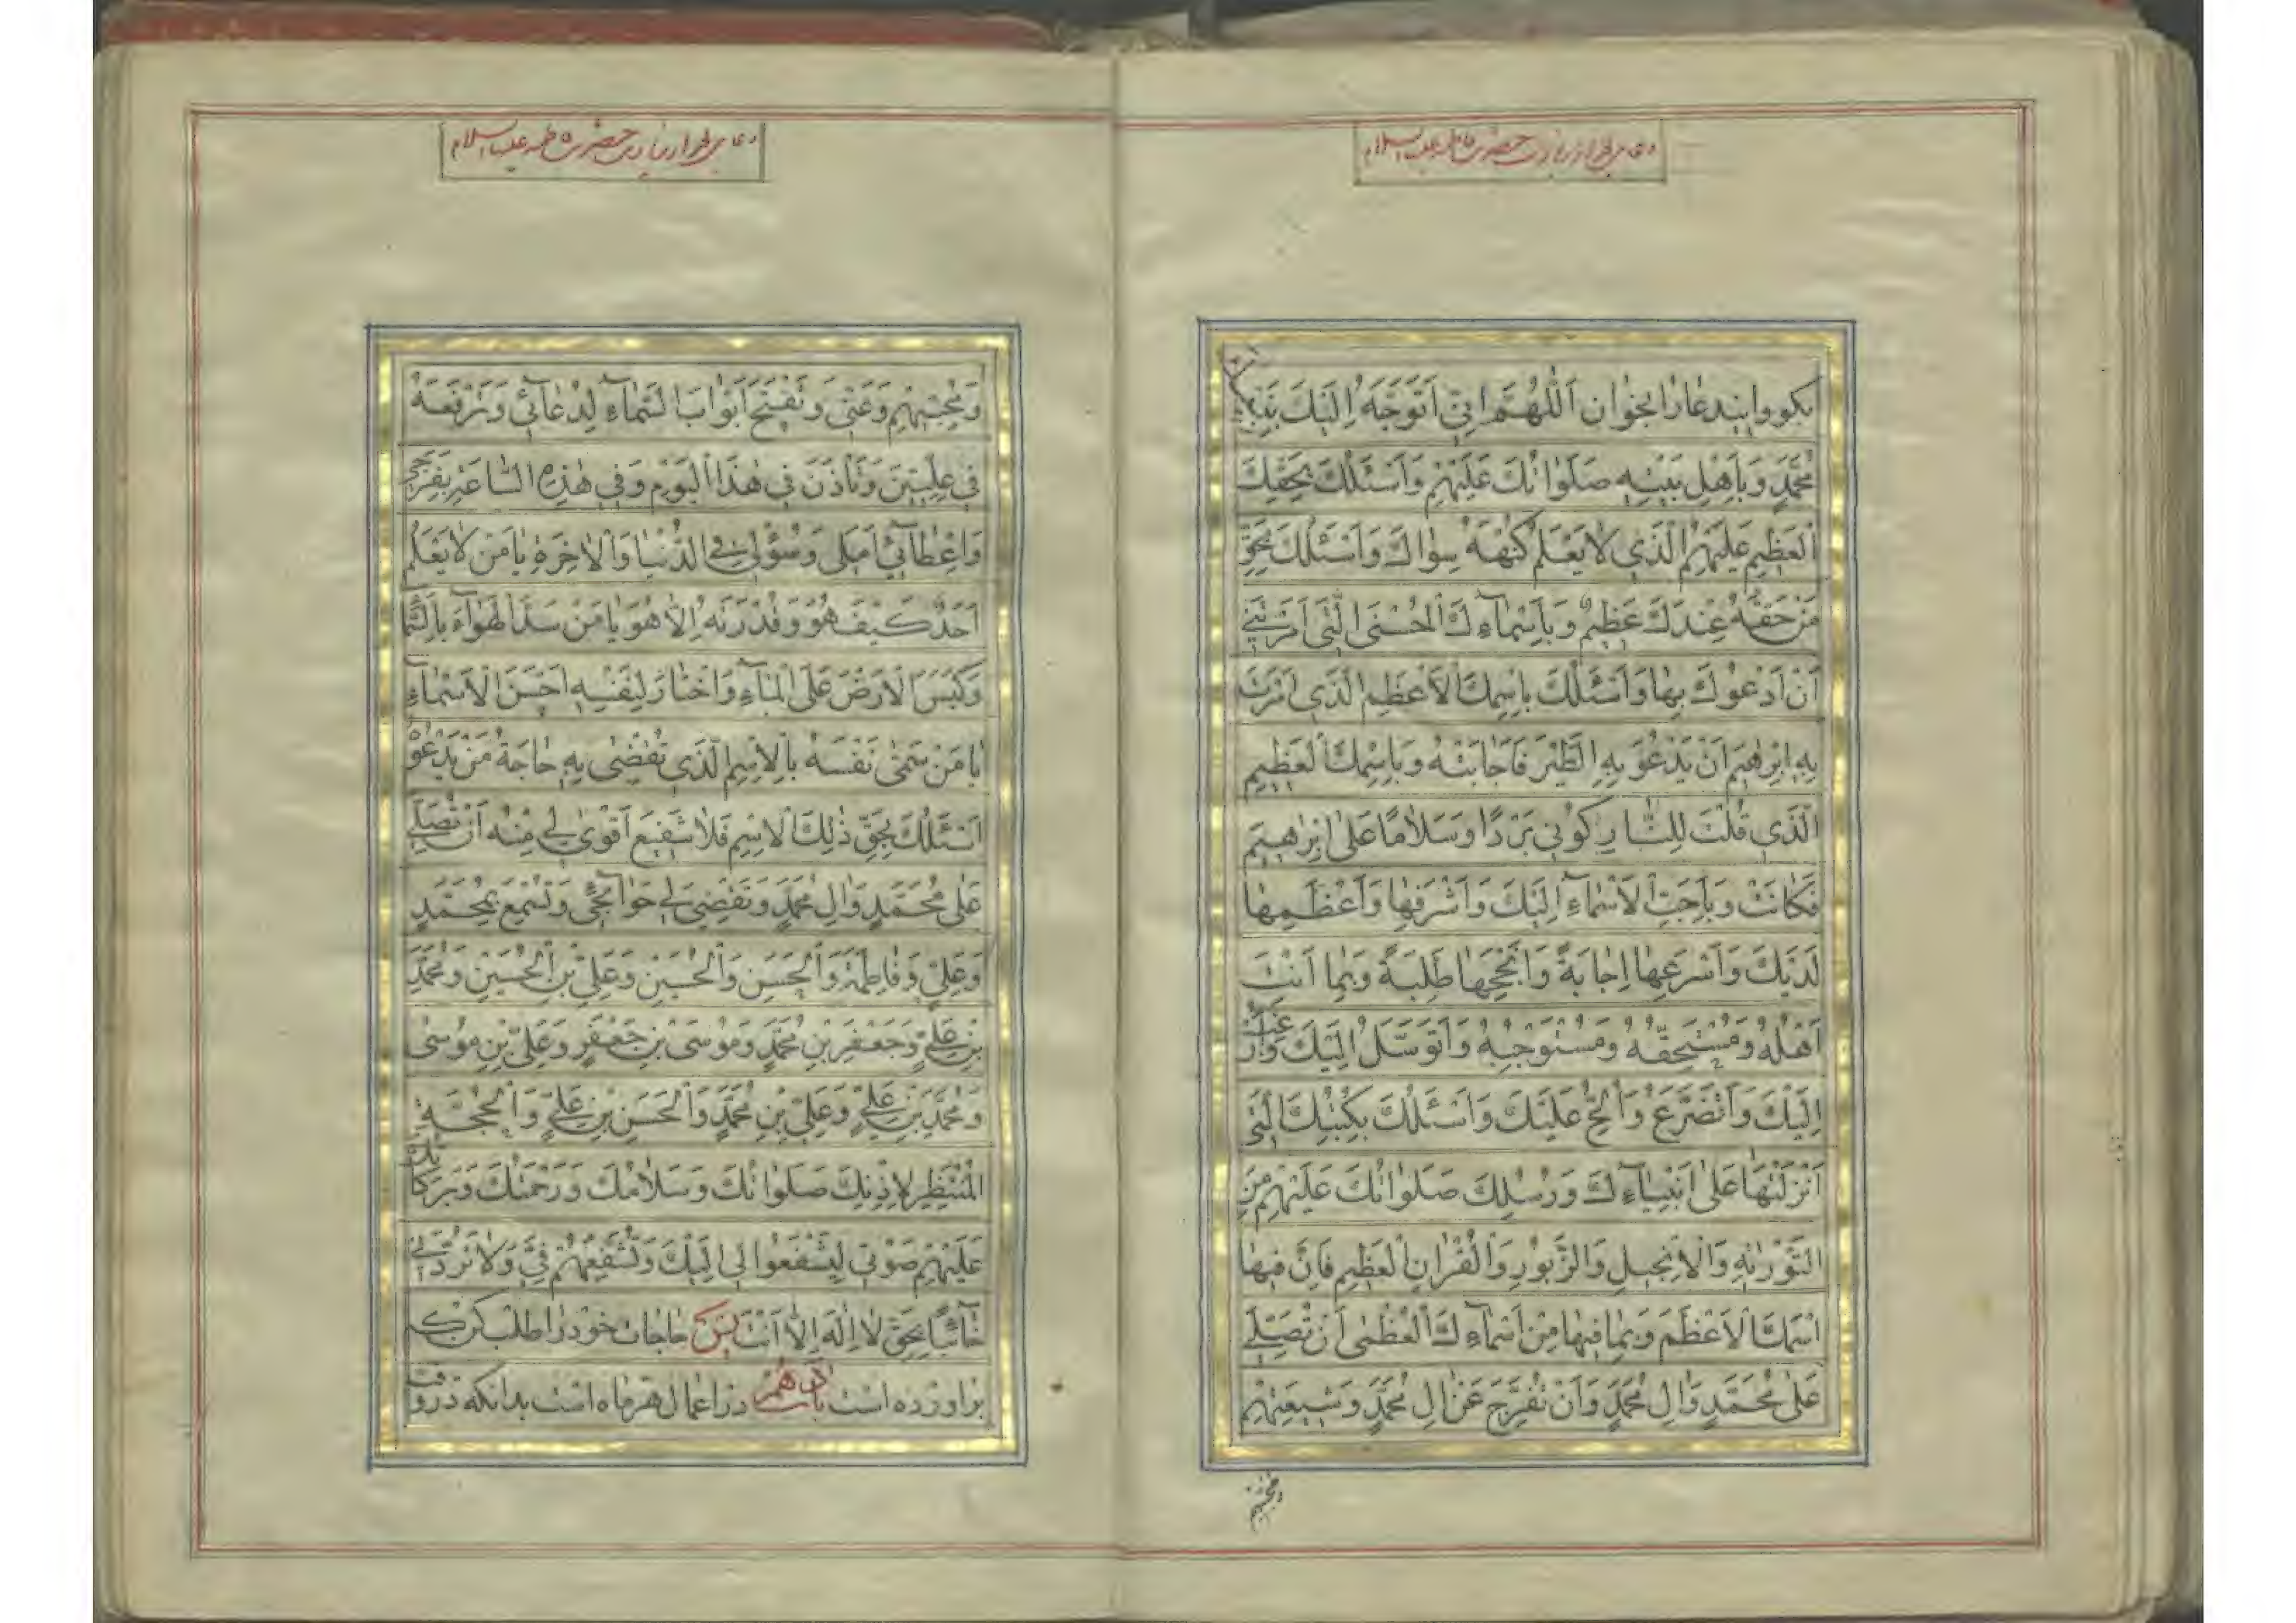 دعا بعد از زیارت حضرت فاطمه علیها السلام
بکو و این دعا را بخوان اَللّٰهُمَّ اِنّیٖ اَتَوَجَّهُ اِلَیْكَ بِنَبِیِّنٰا
مُحَمَّدٍ وَبِاَهْلِ بَیْتِهِ صَلَوٰاتُكَ عَلَیْهِمْ وَاَسْئَلُكَ بِحَقِّكَ
الْعَظیٖمِ عَلَیْهِمُ الَّذیٖ لٰا یَعْلَمُ كُنْهَهُ سِوٰاكَ وَاَسْئَلُكَ بِحَقِّ
مَنْ حَقُّهُ عِنْدَكَ عَظیٖمٌ وَبِاَسْمٰآءِكَ الْحُسْنَی الَّتیٖ اَمَرْتَنیٖ
اَنْ اَدْعُوَكَ بِهٰا وَاَسْئَلُكَ بِاِسْمِكَ الْاَعْظَمِ الَّذیٖ اَمَرْتَ
بِهِ اِبْرٰهیٖمَ اَنْ یَدْعُوَ بِهِ الطَّیْرَ فَاَجٰابَتْهُ وَبِاِسْمِكَ الْعَظیٖمِ
الَّذیٖ قُلْتَ لِلنّٰارِ كُونیٖ بَرْدًا وَسَلٰامًا عَلٰی اِبْرٰهیٖمَ
فَكٰانَتْ وَبِاَحَبِّ الْاَسْمٰآءِ اِلَیْكَ وَاَشْرَفِهٰا وَاَعْظَمِهٰا
لَدَیْكَ وَاَسْرَعِهٰا اِجٰابَةً وَاَنْجَحِهٰا طَلِبَةً وَبِمٰا اَنْتَ
اَهْلُهُ وَمُسْتَحِقُّهُ وَمُسْتَوْجِبُهُ وَاَتَوَسَّلُ اِلَیْكَ وَاَرْغَبُ
اِلَیْكَ وَاَتَضَرَّعُ وَاُلِحُّ عَلَیْكَ وَاَسْئَلُكَ بِكُتُبِكَ الَّتیٖ
اَنْزَلْتَهٰا عَلٰی اَنْبِیٰآءِكَ وَرُسُلِكَ صَلَوٰاتُكَ عَلَیْهِمْ مِنَ
التَّوْرٰیةِ وَالْاِنْجیٖلِ وَالزَّبُورِ وَالْقُرْاٰنِ الْعَظیٖمِ فَاِنَّ فیٖهٰا
اسْمَكَ الْاَعْظَمَ وَبِمٰا فیٖهٰا مِنْ اَسْمٰآءِكَ الْعُظْمٰی اَنْ تُصَلِّیَ
عَلٰی مُحَمَّدٍ وَاٰلِ مُحَمَّدٍ وَاَنْ تُفَرِّجَ عَنْ اٰلِ مُحَمَّدٍ وَشیٖعَتِهِمْ
دعا بعد از زیارت حضرت فاطمه علیها السلام
وَمُحِبّیٖهِمْ وَعَنّیٖ وَتَفْتَحَ اَبْوٰابَ السَّمٰآءِ لِدُعٰآئیٖ وَتَرْفَعَهُ
فیٖ عِلِّیّیٖنَ وَتَاْذَنَ فیٖ هٰذَا الْیَوْمِ وَفیٖ هٰذِهِ السّٰاعَةِ بِفَرَجیٖ
وَاِعْطٰآئیٖ اَمَلیٖ وَسُؤْلیٖ فِی الدُّنْیٰا وَالْاٰخِرَةِ یٰا مَنْ لٰا یَعْلَمُ
اَحَدٌ كَیْفَ هُوَ وَقُدْرَتَهُ اِلّٰا هُوَ یٰا مَنْ سَدَّ الْهَوٰآءَ بِالسَّمٰا
وَكَبَسَ الْاَرْضَ عَلَی الْمٰآءِ وَاخْتٰارَ لِنَفْسِهِ اَحْسَنَ الْاَسْمٰآءِ
یٰا مَنْ سَمّٰی نَفْسَهُ بِالْاِسْمِ الَّذیٖ تُقْضٰی بِهِ حٰاجَةُ مَنْ یَدْعُوهُ
اَسْئَلُكَ بِحَقِّ ذٰلِكَ الْاِسْمِ فَلٰا شَفیٖعَ اَقْوٰی لیٖ مِنْهُ اَنْ تُصَلِّیَ
عَلٰی مُحَمَّدٍ وَاٰلِ مُحَمَّدٍ وَتَقْضِیَ لیٖ حَوٰآئِجیٖ وَتُسْمِعَ بِمُحَمَّدٍ
وَعَلِیٍّ وَفٰاطِمَةَ وَالْحَسَنِ وَالْحُسَیْنِ وَعَلِیِّ بْنِ الْحُسَیْنِ وَمُحَمَّدِ
بْنِ عَلِیٍّ وَجَعْفَرِ بْنِ مُحَمَّدٍ وَمُوسَی بْنِ جَعْفَرٍ وَعَلِیِّ بْنِ مُوسٰی
وَمُحَمَّدِ بْنِ عَلِیٍّ وَعَلِیِّ بْنِ مُحَمَّدٍ وَالْحَسَنِ بْنِ عَلِیٍّ وَالْحُجَّةِ
الْمُنْتَظِرِ لِاِذْنِكَ صَلَوٰاتُكَ وَسَلٰامُكَ وَرَحْمَتُكَ وَبَرَكٰاتُكَ
عَلَیْهِمْ صَوْتیٖ لِیَشْفَعُوا لیٖ اِلَیْكَ وَتُشَفِّعَهُمْ فِیَّ وَلٰا تَرُدَّنیٖ
خٰآئِبًا بِحَقِّ لٰا اِلٰهَ اِلّٰا اَنْتَ پس حاجات خود را طلب کن که
براورده است باب دهم در اعمال هر ماه است بدانکه در وقت